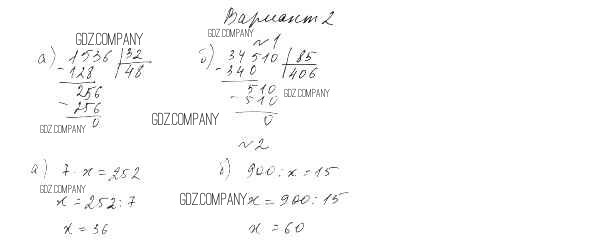 Вариант 2
GDZ.COMPANY
GDZ.COMPANY
№1
а) 1536 | 32
- 128 | 48
256
- 256
0
GDZ.COMPANY
б) 34510 | 85
- 340 | 406
510
- 510
0
GDZ.COMPANY
GDZ.COMPANY
№2
а) 7 · x = 252
GDZ.COMPANY
x = 252 : 7
x = 36
б) 900 : x = 15
GDZ.COMPANY
x = 900 : 15
x = 60